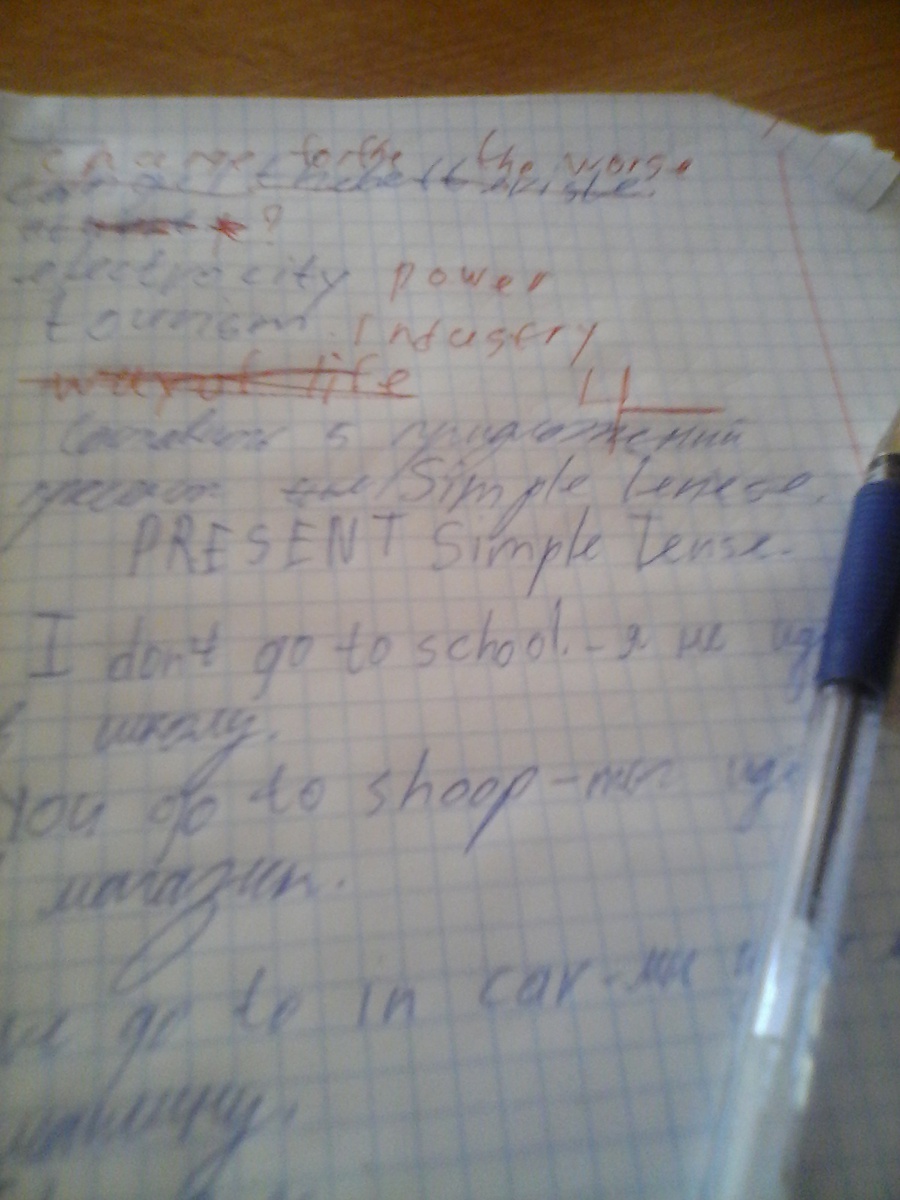 change for the the worse
?
electrocity power
tourism. Industry
way of life 4
Составить 5 придложений
Simple Tenese.
PRESENT Simple Tense.
I don't go to school. - я не иду
в школу.
You go to shoop - ты иду
магазин.
we go to in car - мы
машину.